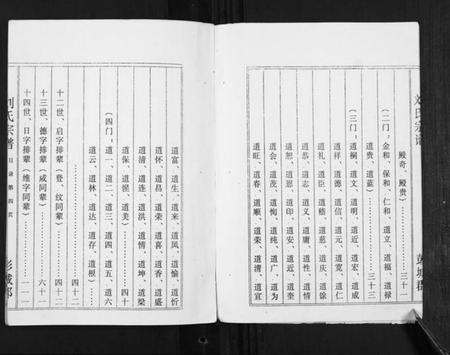 刘氏宗谱
彭城郡
殿奇、殿贵)…………三十一
(二门:金和、保和、仁和、道立、道福、道禄
道贵、道蓝)…………三十三
(三门:道桐、道文、道明、道近、道宏、道成
道祥、道德、道信、道元、道宽、道仁
道礼、道臣、道镕、道梧、道庆、道馀
道恭、道志、道义、道庸、道性、道情
道恕、道恩、道印、道安、道近、道奎
道会、道茂、道恂、道纯、道广、道为
道旺、道春、道顺、道荣、道清、道宣
道富、道生、道来、道凤、道愉、道忻
道怀、道昌、道荣、道喜、道香、道盛
道清、道连、道洪、道情、道坤、道梁
道保、道淫、道美)…………四十
(四门:道一、道二、道三、道四、道五、道六
道云、道林、道达、道存、道根)……
四十二
十二世、启字排辈(登、纹同辈)……四十二
十三世、德字排辈(咸同辈)……六十一
十四世、日字排辈(维字同辈)……一一一
刘氏宗谱
目录第四页
彭城郡